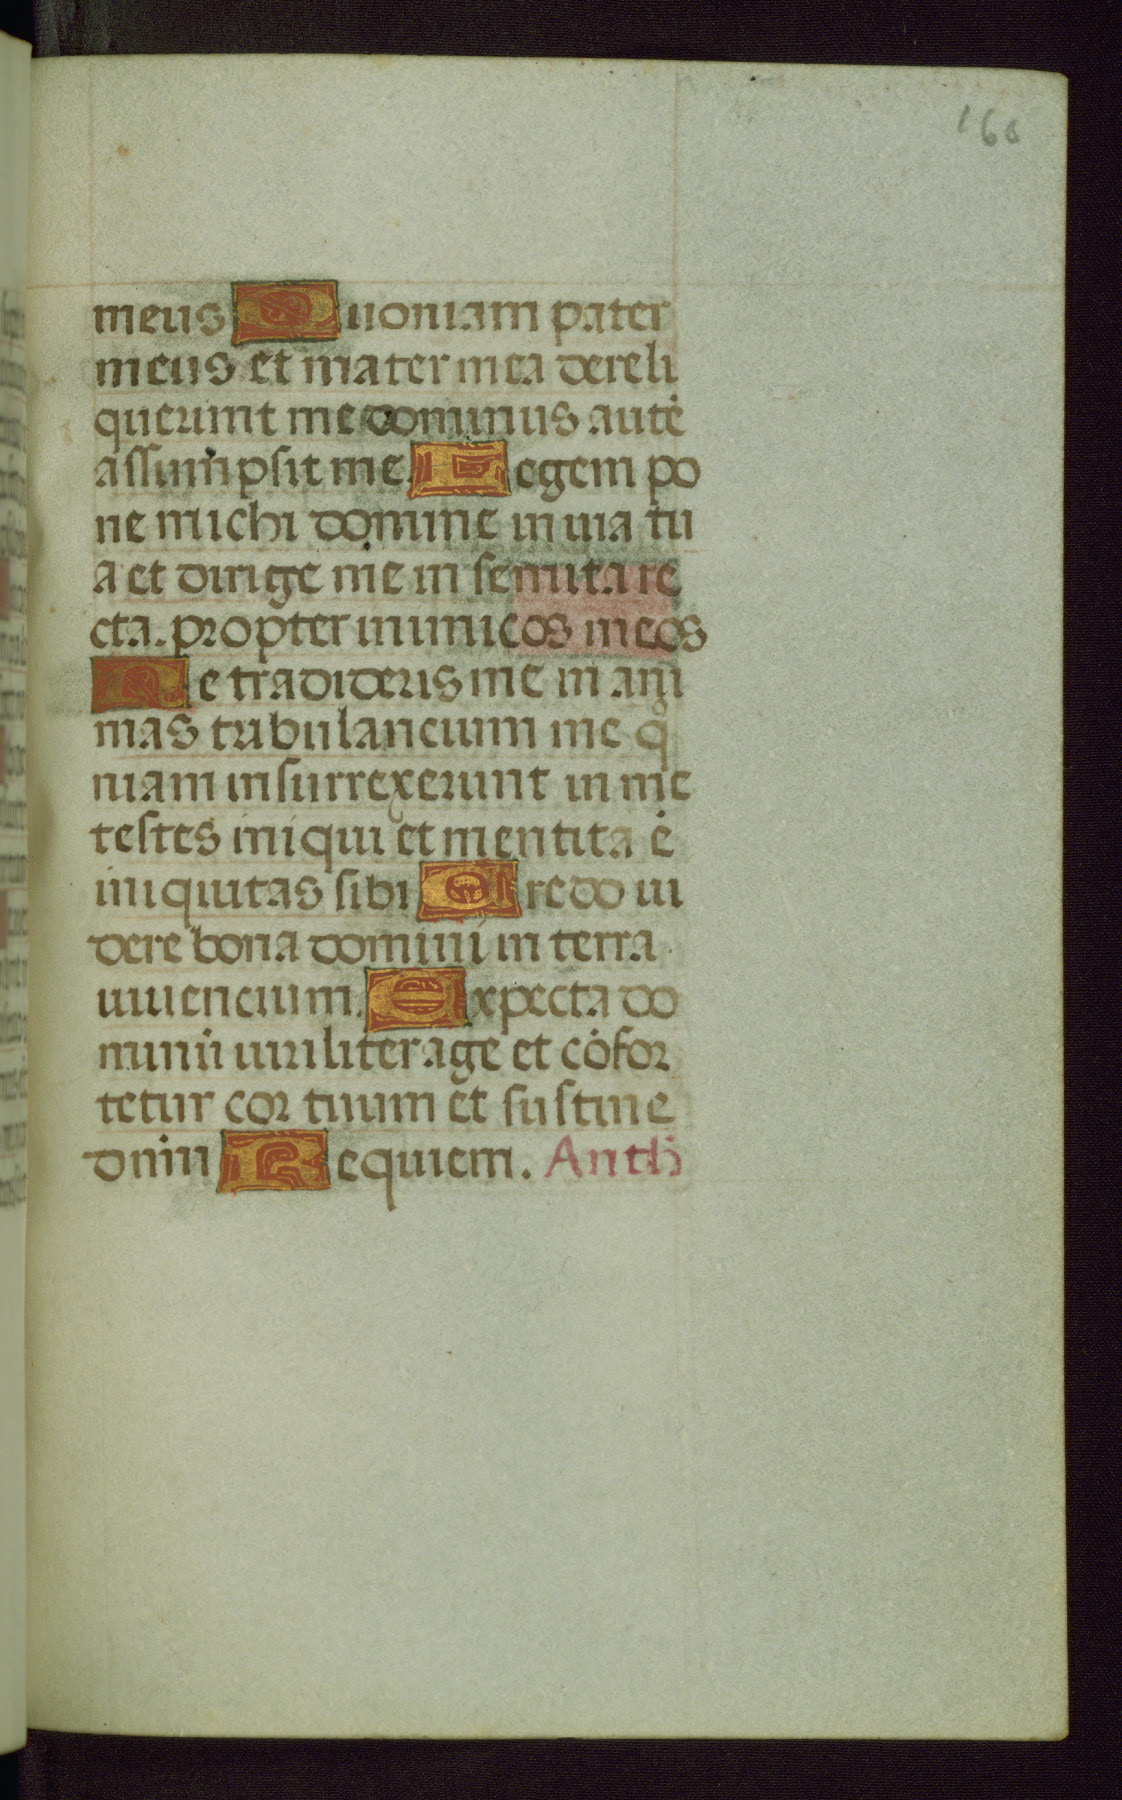 166
meus Quoniam pater
meus et mater mea dereli
querunt me dominus autē
assumpsit me. Legem po
ne michi domine in uia tu
a et dirige me in semita re
cta. propter inimicos meos
Ne tradideris me in ani
mas tribulancium me qo
niam insurrexerunt in me
testes iniqui et mentita ē
iniquitas sibi Credo ui
dere bona domini in terra
uiuencium. Expecta do
minū uiriliter age et cōfor
tetur cor tuum et sustine
dnm̄ Requiem. Anth̄